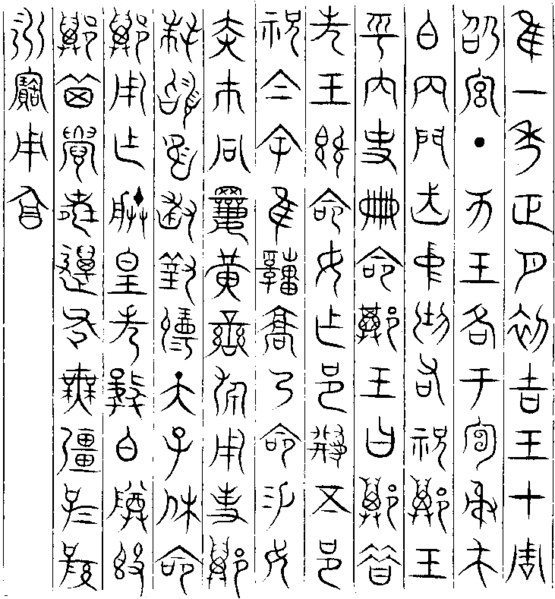 隹一年正月初吉王才周
卲宮丁亥王各于宣射毛
白內門立中廷右祝王
乎內史冊命王曰昔
先王既命女乍邑五邑
祝今余隹乃命易女
赤巿冋黃䜌旂用事
拜稽首敢對揚天子休命
用乍朕皇考龏白尊簋
其眉壽邁年無疆子孫
永寶用享